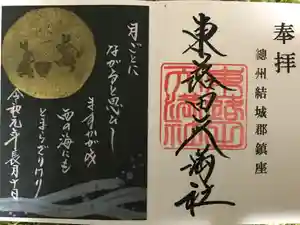 奉拝
總州結城郡鎮座
東蕗田天満社
月ごとに
ながると思ひし
ますかが み
西の海にも
とまらざりけり
令和元年長月十日